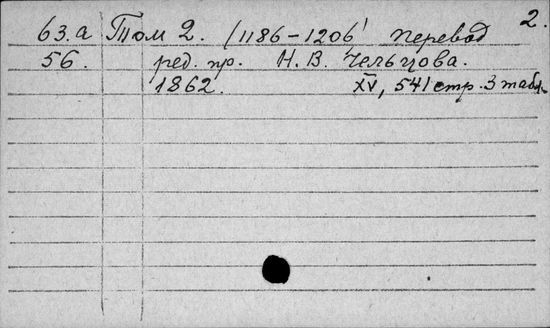 2.
63.а Том 2. /1186-1206/ перевод
56. ред. пр. Н. В. Чельцова.
1862. XV, 541 стр. 3 табл.